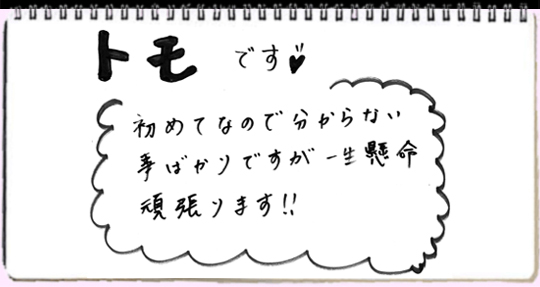 トモ です♥
初めてなので分からない
事ばかりですが一生懸命
頑張ります!!